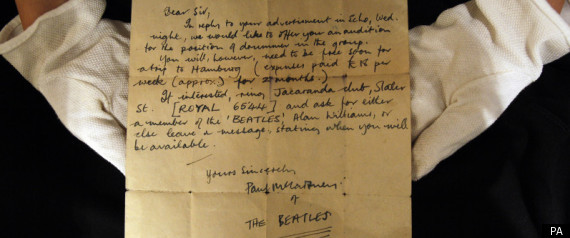 Dear Sir,
In reply to your advertisement in Echo, Wed.
night, we would like to offer you an audition
for the position of drummer in the group.
You will, however, need to be free soon for
a trip to Hamburg (expenses paid £18 per
week (approx.) for 2 months.)
If interested, ring Jacaranda club, Slater
St. [ROYAL 6544] and ask for either
a member of the 'BEATLES', Alan Williams, or
else leave a message, stating when you will
be available.
Yours Sincerely,
Paul McCartney
of
THE BEATLES
PA